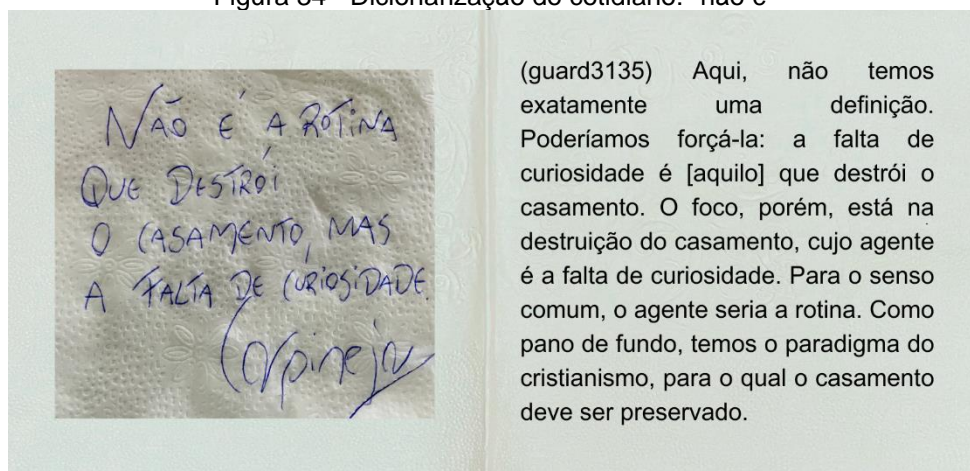 Figura 84 - Dicionarização do cotidiano: "não é"
NÃO É A ROTINA
QUE DESTRÓI
O CASAMENTO, MAS
A FALTA DE CURIOSIDADE.
Carpinejar
(guard3135) Aqui, não temos
exatamente uma definição.
Poderíamos forçá-la: a falta de
curiosidade é [aquilo] que destrói o
casamento. O foco, porém, está na
destruição do casamento, cujo agente
é a falta de curiosidade. Para o senso
comum, o agente seria a rotina. Como
pano de fundo, temos o paradigma do
cristianismo, para o qual o casamento
deve ser preservado.